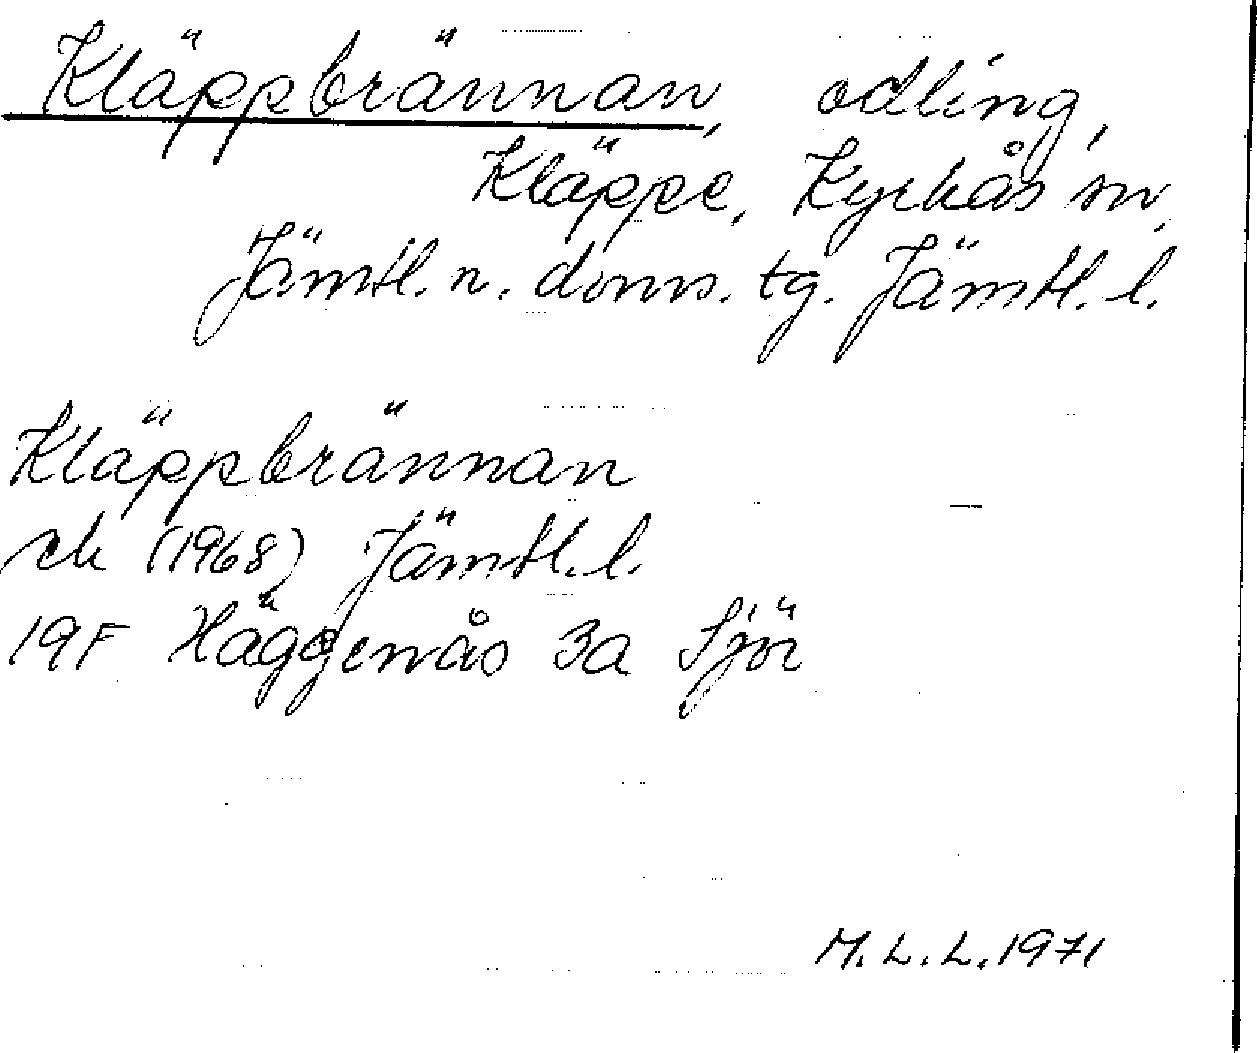 Kläppbrännan, odling,
Kläppe, Kyrkås sn,
Jämtl. n. doms. tg. Jämtl. l.
Kläppbrännan
ek (1968) Jämtl. l.
19F Häggenås 3a Sjör
M.L.L. 1971